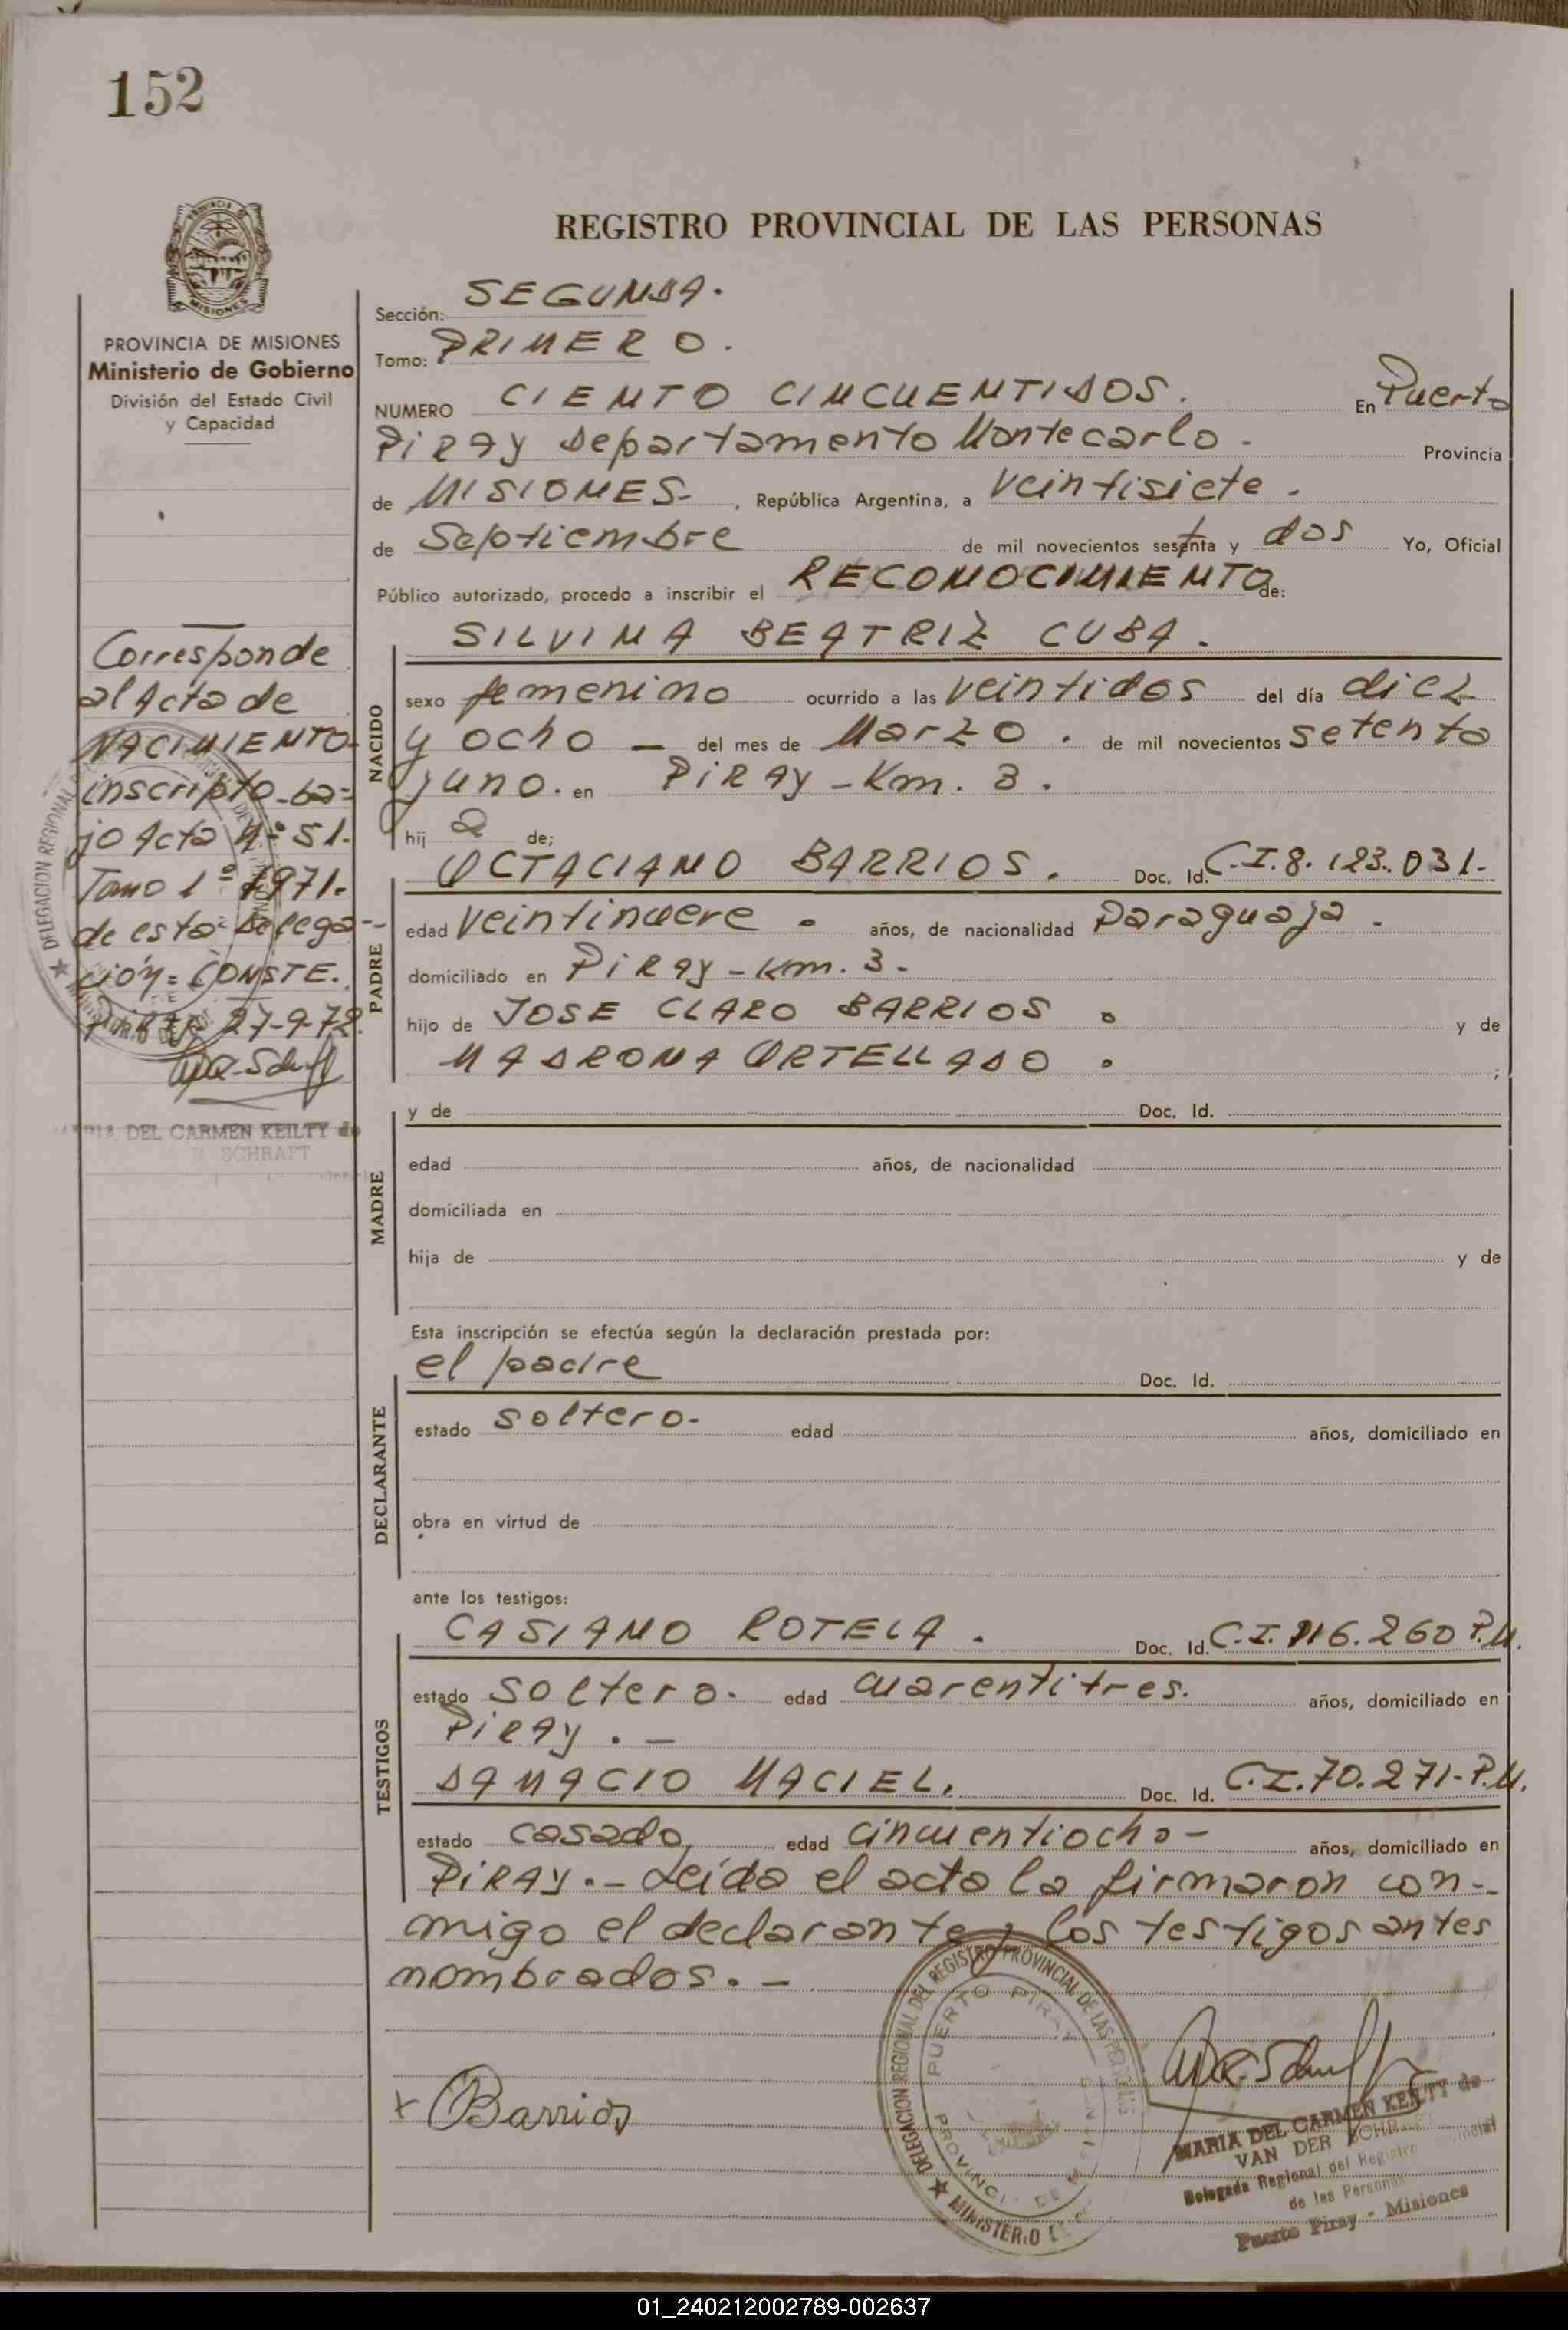 152
REGISTRO PROVINCIAL DE LAS PERSONAS
PROVINCIA DE MISIONES
Ministerio de Gobierno
División del Estado Civil
y Capacidad
Corresponde
al Acta de
NACIMIENTO
inscripto ba=
jo Acta Nº 51.
Tomo 1º 1971.
de esta Delega-
ción= CONSTE.
27-9-72.
DEL CARMEN KEILTY de
SCHRAFT
Sección: SEGUNDA.
Tomo: PRIMERO.
NUMERO CIENTO CINCUENTIDOS. En Puerto
PIRAY Departamento Montecarlo. Provincia
de MISIONES. , República Argentina, a veintisiete.
de Septiembre de mil novecientos setenta y dos Yo, Oficial
Público autorizado, procedo a inscribir el RECONOCIMIENTO de:
SILVINA BEATRIZ CUBA.
NACIDO
sexo femenino ocurrido a las veintidos del día diez
y ocho — del mes de Marzo. de mil novecientos setenta
y uno. en PIRAY - Km. 3.
hij a de;
OCTACIANO BARRIOS. Doc. Id. C.I. 8.123.031.-
PADRE
edad veintinueve. años, de nacionalidad Paraguaja.
domiciliado en PIRAY - Km. 3.
hijo de JOSE CLARO BARRIOS y de
MADRONA ORTELLADO ;
MADRE
y de Doc. Id.
edad años, de nacionalidad
domiciliada en
hija de y de
Esta inscripción se efectúa según la declaración prestada por:
el padre Doc. Id.
DECLARANTE
estado soltero. edad años, domiciliado en
obra en virtud de
ante los testigos:
CASIANO ROTELA. Doc. Id. C.I. 116.260 P.M.
TESTIGOS
estado soltero. edad cuarentitres. años, domiciliado en
PIRAY. —
DAMACIO MACIEL. Doc. Id. C.I. 70.271-P.M.
estado casado edad cincuentiocho - años, domiciliado en
PIRAY.- Leída el acta la firmaron con-
migo el declarante y los testigos antes
nombrados. —
DELEGACION REGIONAL DEL REGISTRO PROVINCIAL DE LAS PERSONAS
PUERTO PIRAY
MINISTERIO
x Barrios
MARIA DEL CARMEN KEILTY de
VAN DER
Delegada Regional del Registro
de las Personas
Puerto Piray - Misiones
01_240212002789-002637